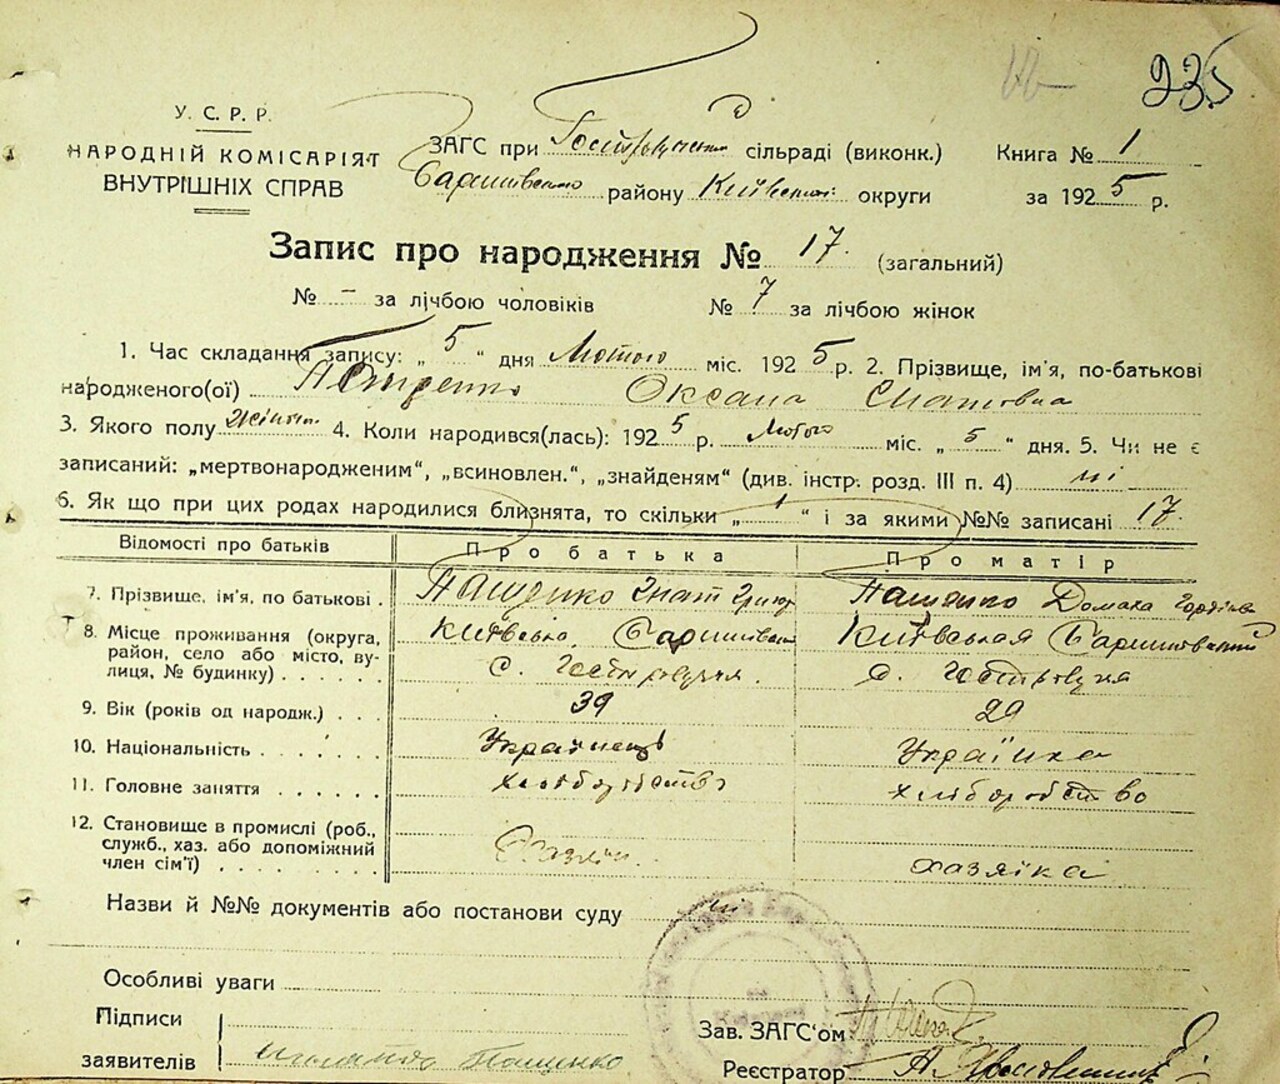 235
У. С. Р. Р.
НАРОДНІЙ КОМІСАРІЯТ
ВНУТРІШНІХ СПРАВ
ЗАГС при сільраді (виконк.)
Баришівського району Київської округи
Книга № 1
за 1925 р.
Запис про народження № 17. (загальний)
№ - за лічбою чоловіків № 7 за лічбою жінок
1. Час складання запису: „ 5 “ дня Лютого міс. 1925 р. 2. Прізвище, ім'я, по-батькові
народженого(ої) Пащенко Оксана Гнатовна
3. Якого полу жіноч. 4. Коли народився(лась): 1925 р. Лютого міс. „ 5 “ дня. 5. Чи не є
записаний: „мертвонародженим“, „всиновлен.“, „знайденям“ (див. інстр. розд. III п. 4) ні
6. Як що при цих родах народилися близнята, то скільки „ 1 “ і за якими №№ записані 17.
Відомості про батьків Про батька Про матір
7. Прізвище, ім'я, по батькові . Пащенко Гнат Григор Пащенко Домаха Гордіївна
8. Місце проживання (округа, Київська, Баришівськ Київськая Баришовський
район, село або місто, ву- с. Гостролуччя. с. Гостролуччя
лиця, № будинку) . . . . . .
9. Вік (років од народж.) . . . 39 29
10. Національність . . . . . Українець Українка
11. Головне заняття . . . . . . хліборобство хліборобство
12. Становище в промислі (роб.,
служб., хаз. або допоміжний Хазяїн. хазяїка
член сім'ї) . . . . . . . . .
Назви й №№ документів або постанови суду ні
Особливі уваги
Підписи
заявителів Пащенко
Зав. ЗАГС'ом
Реєстратор А.